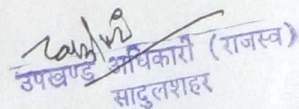 उपखण्ड अधिकारी (राजस्व)
सादुलशहर